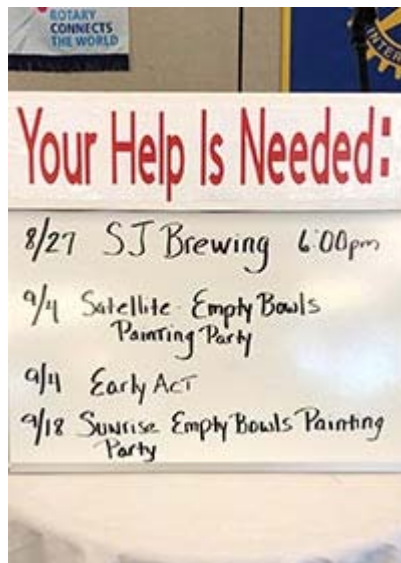 ROTARY
CONNECTS
THE WORLD
INTER
Your Help Is Needed:
8/27 SJ Brewing 6:00pm
9/4 Satellite - Empty Bowls
Painting Party
9/11 Early Act
9/18 Sunrise Empty Bowls Painting
Party